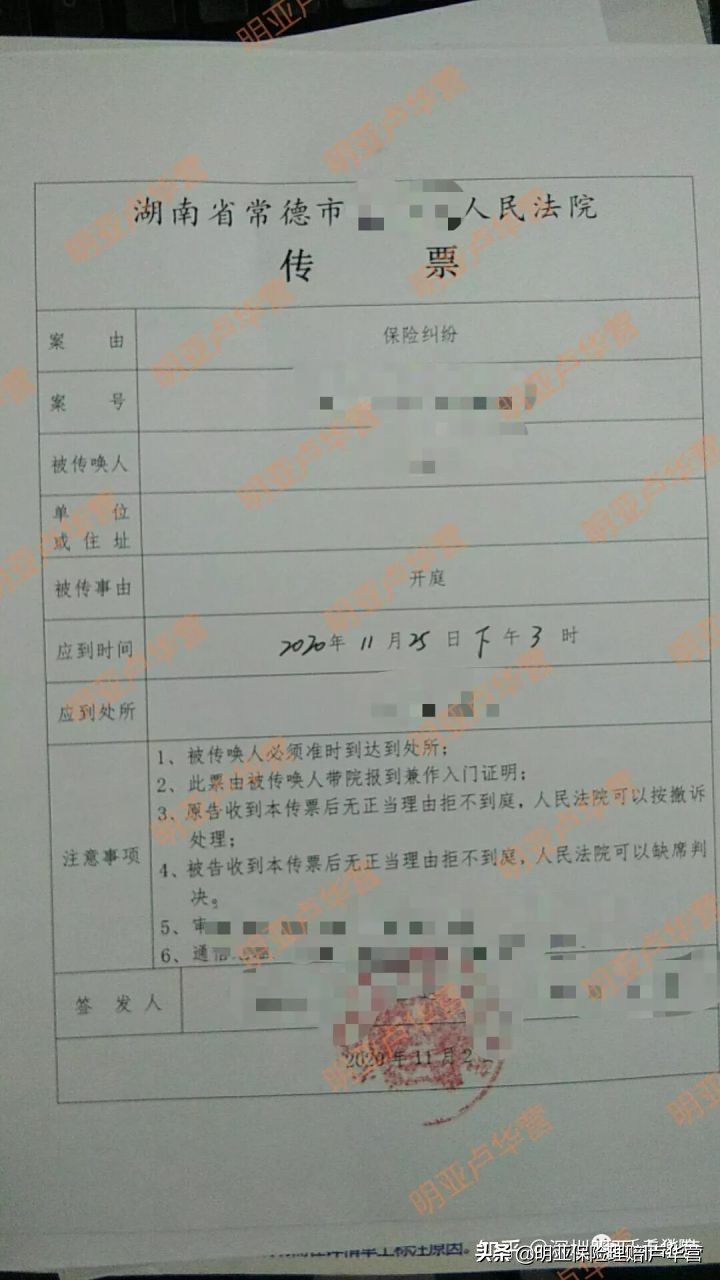 湖南省常德市 人民法院
传 票
案 由 保险纠纷
案 号
被传唤人
单 位
或 住 址
被传事由 开庭
应到时间 2020年 11 月 25 日 下 午 3 时
应到处所
注意事项
1、被传唤人必须准时到达到处所；
2、此票由被传唤人带院报到兼作入门证明；
3、原告收到本传票后无正当理由拒不到庭，人民法院可以按撤诉
处理；
4、被告收到本传票后无正当理由拒不到庭，人民法院可以缺席判
决。
5、审
6、通信
签 发 人
2020 年 11 月 2
明亚卢华营
知乎
头条 @明亚保险理赔卢华营